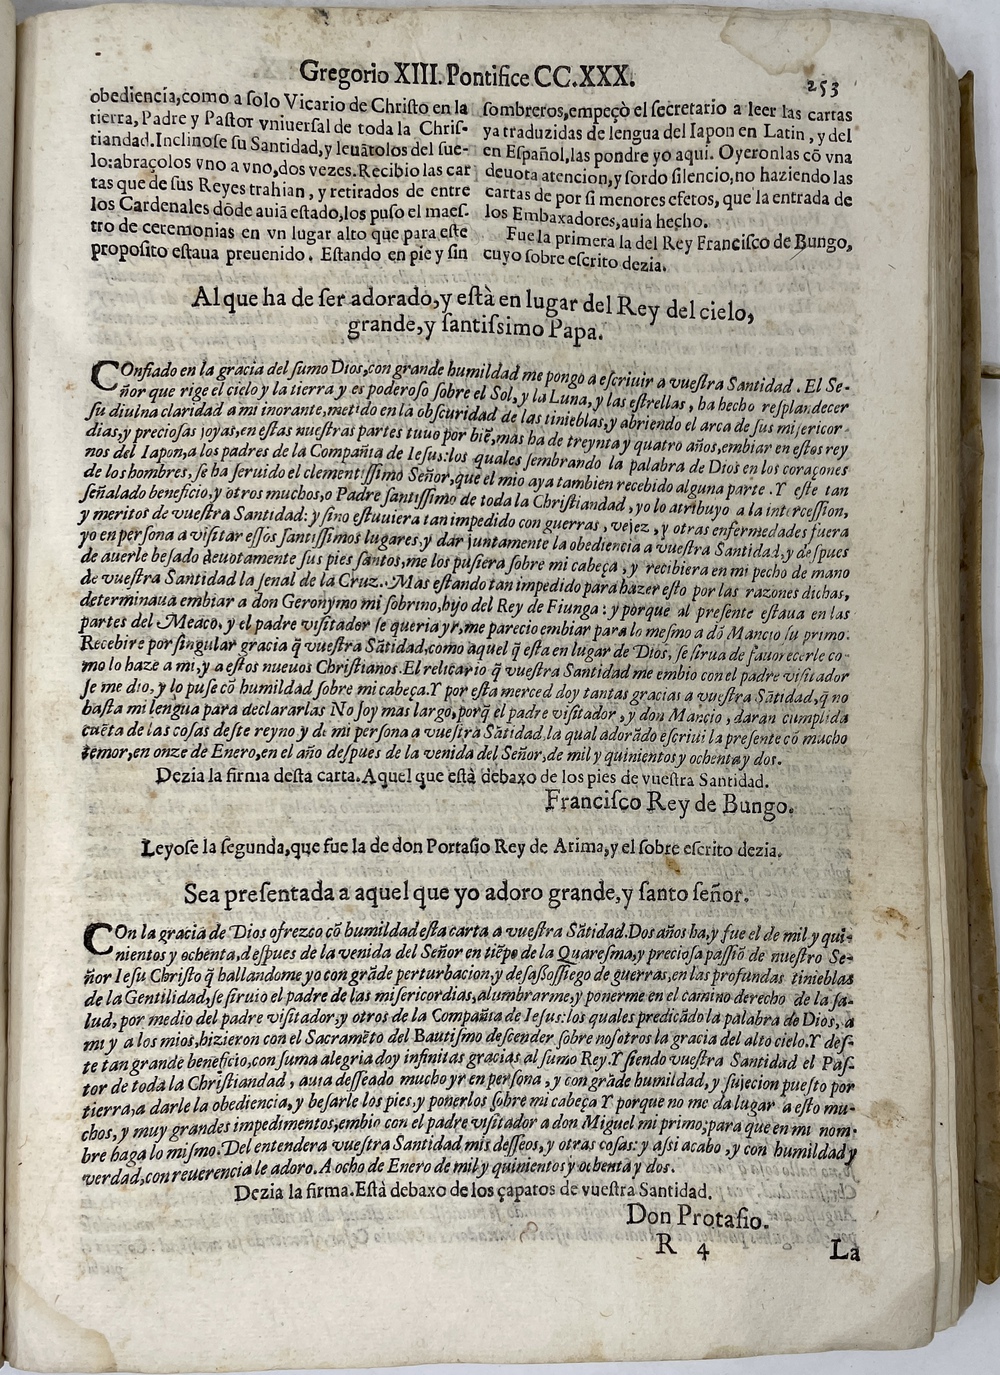 Gregorio XIII. Pontifice CC.XXX.
253
obediencia,como a ſolo Vicario de Chriſto en la
tierra, Padre y Paſtor vniuerſal de toda la Chriſ-
tiandad.Inclinoſe ſu Santidad,y leuãtolos del ſue-
lo:abraçolos vno a vno,dos vezes.Recibio las car
tas que de ſus Reyes trahian, y retirados de entre
los Cardenales dõde auiã eſtado,los puſo el maeſ-
tro de ceremonias en vn lugar alto que para eſte
propoſito eſtaua preuenido. Eſtando en pie y ſin
ſombreros,empeçò el ſecretario a leer las cartas
ya traduzidas de lengua del Iapon en Latin, y del
en Eſpañol,las pondre yo aqui. Oyeronlas cõ vna
deuota atencion,y ſordo ſilencio,no haziendo las
cartas de por ſi menores efetos, que la entrada de
los Embaxadores,auia hecho.
Fue la primera la del Rey Franciſco de Bungo,
cuyo ſobre eſcrito dezia.
Al que ha de ſer adorado,y eſtà en lugar del Rey del cielo,
grande,y ſantiſsimo Papa.
COnfiado en la gracia del ſumo Dios,con grande humildad me pongo a eſcriuir a vueſtra Santidad. El Se-
ñor que rige el cielo y la tierra y es poderoſo ſobre el Sol, y la Luna, y las eſtrellas, ha hecho reſplandecer
ſu diuina claridad a mi inorante,metido en la obſcuridad de las tinieblas,y abriendo el arca de ſus miſericor-
dias,y precioſas joyas,en eſtas nueſtras partes tuuo por biẽ,mas ha de treynta y quatro años,embiar en eſtos rey
nos del Iapon,a los padres de la Compañia de Ieſus:los quales ſembrando la palabra de Dios en los coraçones
de los hombres, ſe ha ſeruido el clementiſſimo Señor,que el mio aya tambien recebido alguna parte. Y eſte tan
ſeñalado beneficio,y otros muchos,o Padre ſantiſſimo de toda la Chriſtiandad, yo lo atribuyo a la interceſſion,
y meritos de vueſtra Santidad: y ſino eſtuuiera tan impedido con guerras, vejez, y otras enfermedades fuera
yo en perſona a viſitar eſſos ſantiſſimos lugares,y dar juntamente la obediencia a vueſtra Santidad,y deſpues
de auerle beſado deuotamente ſus pies ſantos,me los puſiera ſobre mi cabeça, y recibiera en mi pecho de mano
de vueſtra Santidad la ſenal de la Cruz. Mas eſtando tan impedido para hazer eſto por las razones dichas,
determinaua embiar a don Geronymo mi ſobrino,hijo del Rey de Fiunga: y porque al preſente eſtaua en las
partes del Meaco, y el padre viſitador ſe queria yr,me parecio embiar para lo meſmo a dõ Mancio ſu primo.
Recebire por ſingular gracia q̃ vueſtra Sãtidad,como aquel q̃ eſta en lugar de Dios, ſe ſirua de fauorecerle co-
mo lo haze a mi,y a eſtos nueuos Chriſtianos.El relicario q̃ vueſtra Santidad me embio con el padre viſitador
ſe me dio,y lo puſe cõ humildad ſobre mi cabeça.Y por eſta merced doy tantas gracias a vueſtra Sãtidad,q̃ no
baſta mi lengua para declararlas No ſoy mas largo,porq̃ el padre viſitador, y don Mancio, daran cumplida
cuẽta de las coſas deſte reyno y de mi perſona a vueſtra Sãtidad,la qual adorãdo eſcriui la preſente cõ mucho
temor,en onze de Enero,en el año deſpues de la venida del Señor,de mil y quinientos y ochenta y dos.
Dezia la firma deſta carta.Aquel que eſtà debaxo de los pies de vueſtra Santidad.
Franciſco Rey de Bungo.
Leyoſe la ſegunda,que fue la de don Portaſio Rey de Arima,y el ſobre eſcrito dezia.
Sea preſentada a aquel que yo adoro grande,y ſanto ſeñor.
COn la gracia de Dios ofrezco cõ humildad eſta carta a vueſtra Sãtidad.Dos años ha,y fue el de mil y qui-
nientos y ochenta,deſpues de la venida del Señor en tiẽpo de la Quareſma,y precioſa paſſiõ de nueſtro Se-
ñor Ieſu Chriſto q̃ hallandome yo con grãde perturbacion,y deſaſſoſſiego de guerras,en las profundas tinieblas
de la Gentilidad,ſe ſiruio el padre de las miſericordias,alumbrarme,y ponerme en el camino derecho de la ſa-
lud, por medio del padre viſitador,y otros de la Compañia de Ieſus:los quales predicãdo la palabra de Dios, a
mi y a los mios,hizieron con el Sacramẽto del Bautiſmo deſcender ſobre noſotros la gracia del alto cielo.Y deſ-
te tan grande beneficio,con ſuma alegria doy infinitas gracias al ſumo Rey.Y ſiendo vueſtra Santidad el Paſ-
tor de toda la Chriſtiandad, auia deſſeado mucho yr en perſona, y con grãde humildad, y ſujecion pueſto por
tierra,a darle la obediencia,y beſarle los pies,y ponerlos ſobre mi cabeça Y porque no me da lugar a eſto mu-
chos,y muy grandes impedimentos,embio con el padre viſitador a don Miguel mi primo;para que en mi nom-
bre haga lo miſmo. Del entendera vueſtra Santidad mis deſſeos,y otras coſas: y aſsi acabo, y con humildad y
verdad,con reuerencia le adoro. A ocho de Enero de mil y quinientos y ochenta y dos.
Dezia la firma.Eſtà debaxo de los çapatos de vueſtra Santidad.
Don Protaſio.
R 4
La